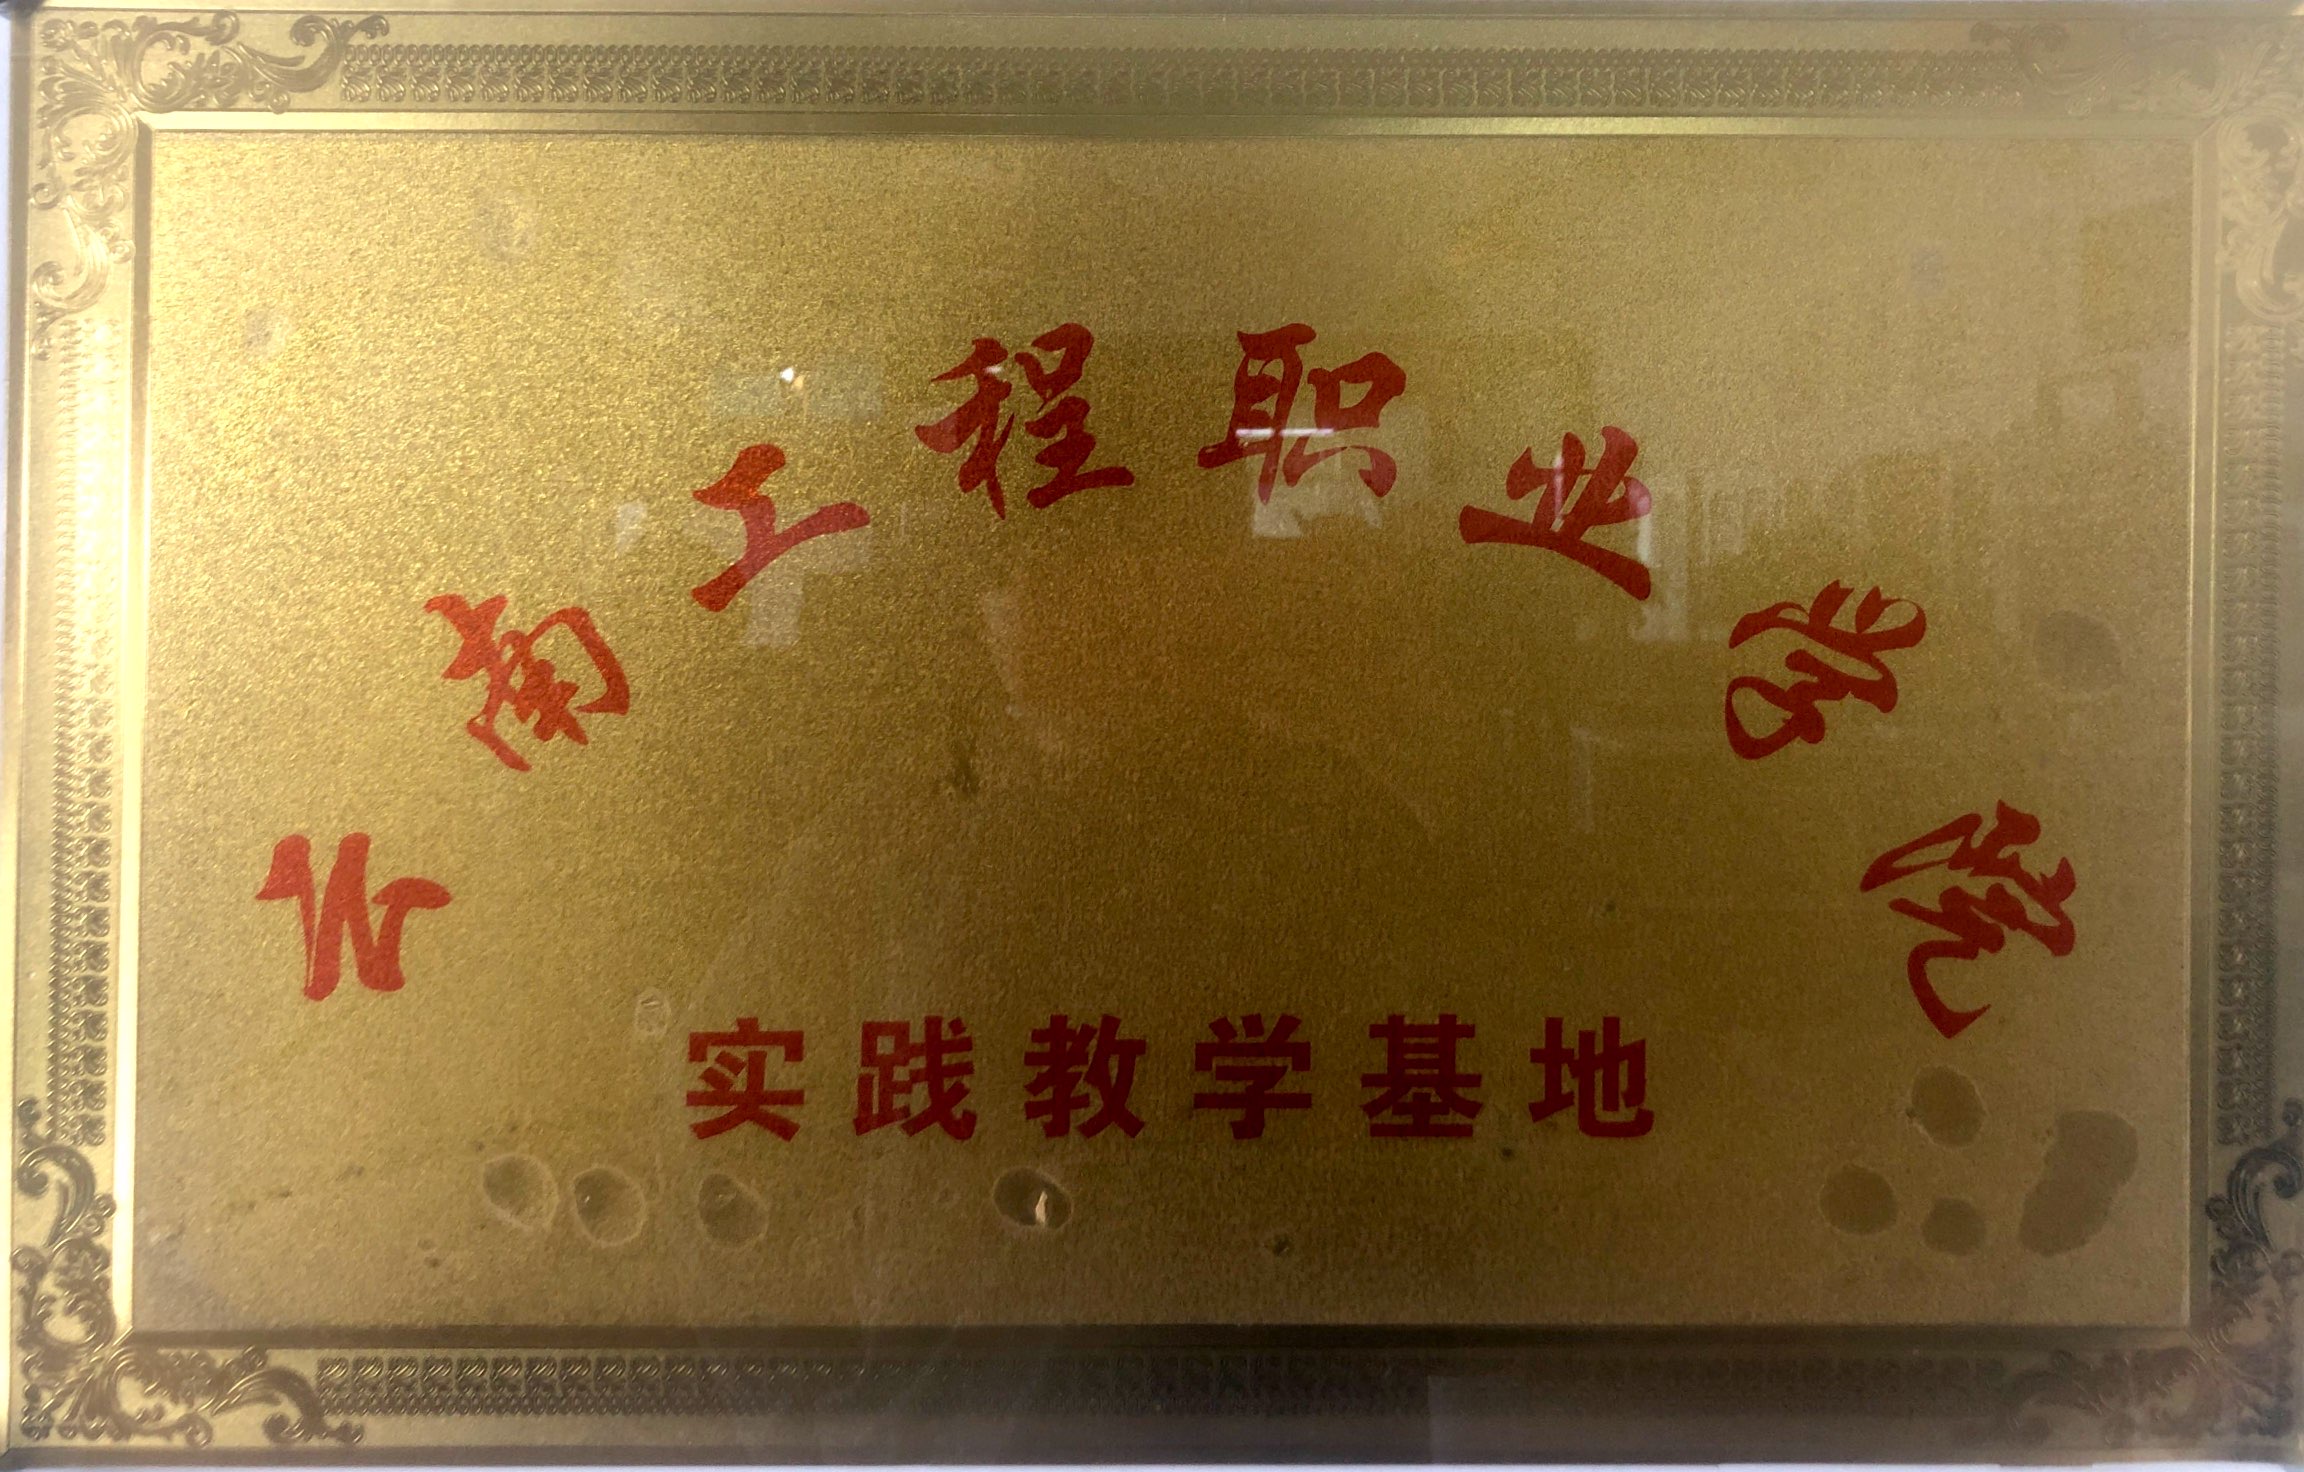 云南工程职业学院
实践教学基地